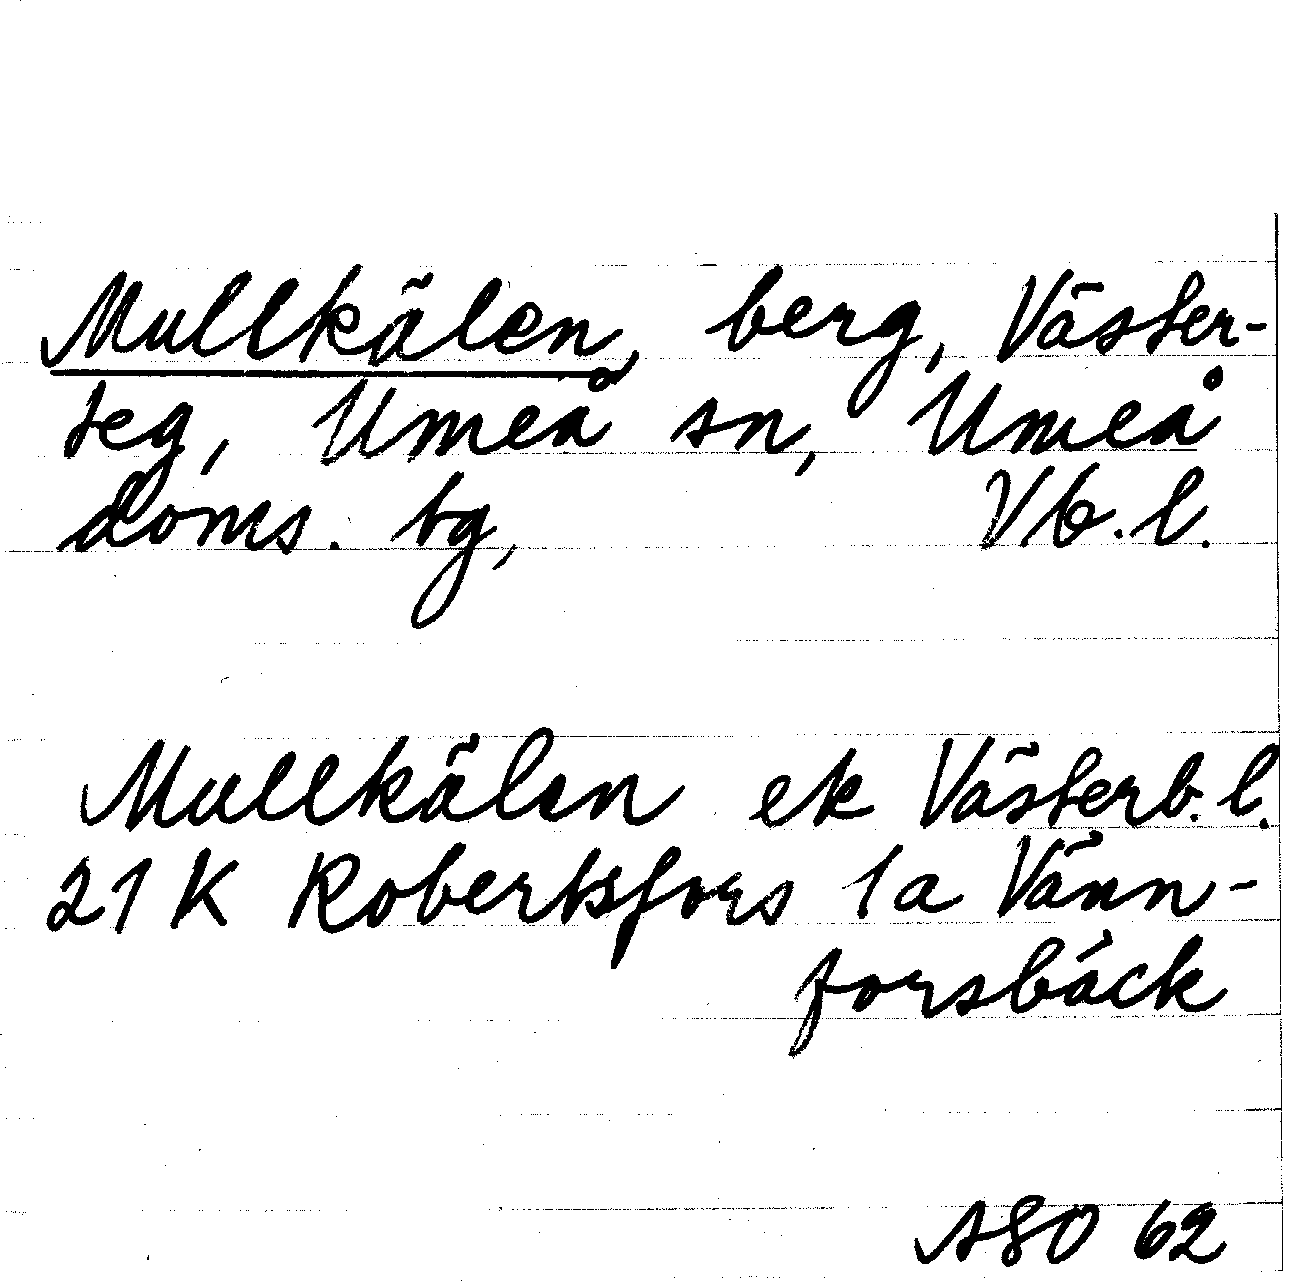 Mullkälen, berg, Väster-
teg, Umeå sn, Umeå
doms. tg, Vb. l.
Mullkälen ek Västerb. l.
21 K Robertsfors 1a Vänn-
forsbäck
ASO 62